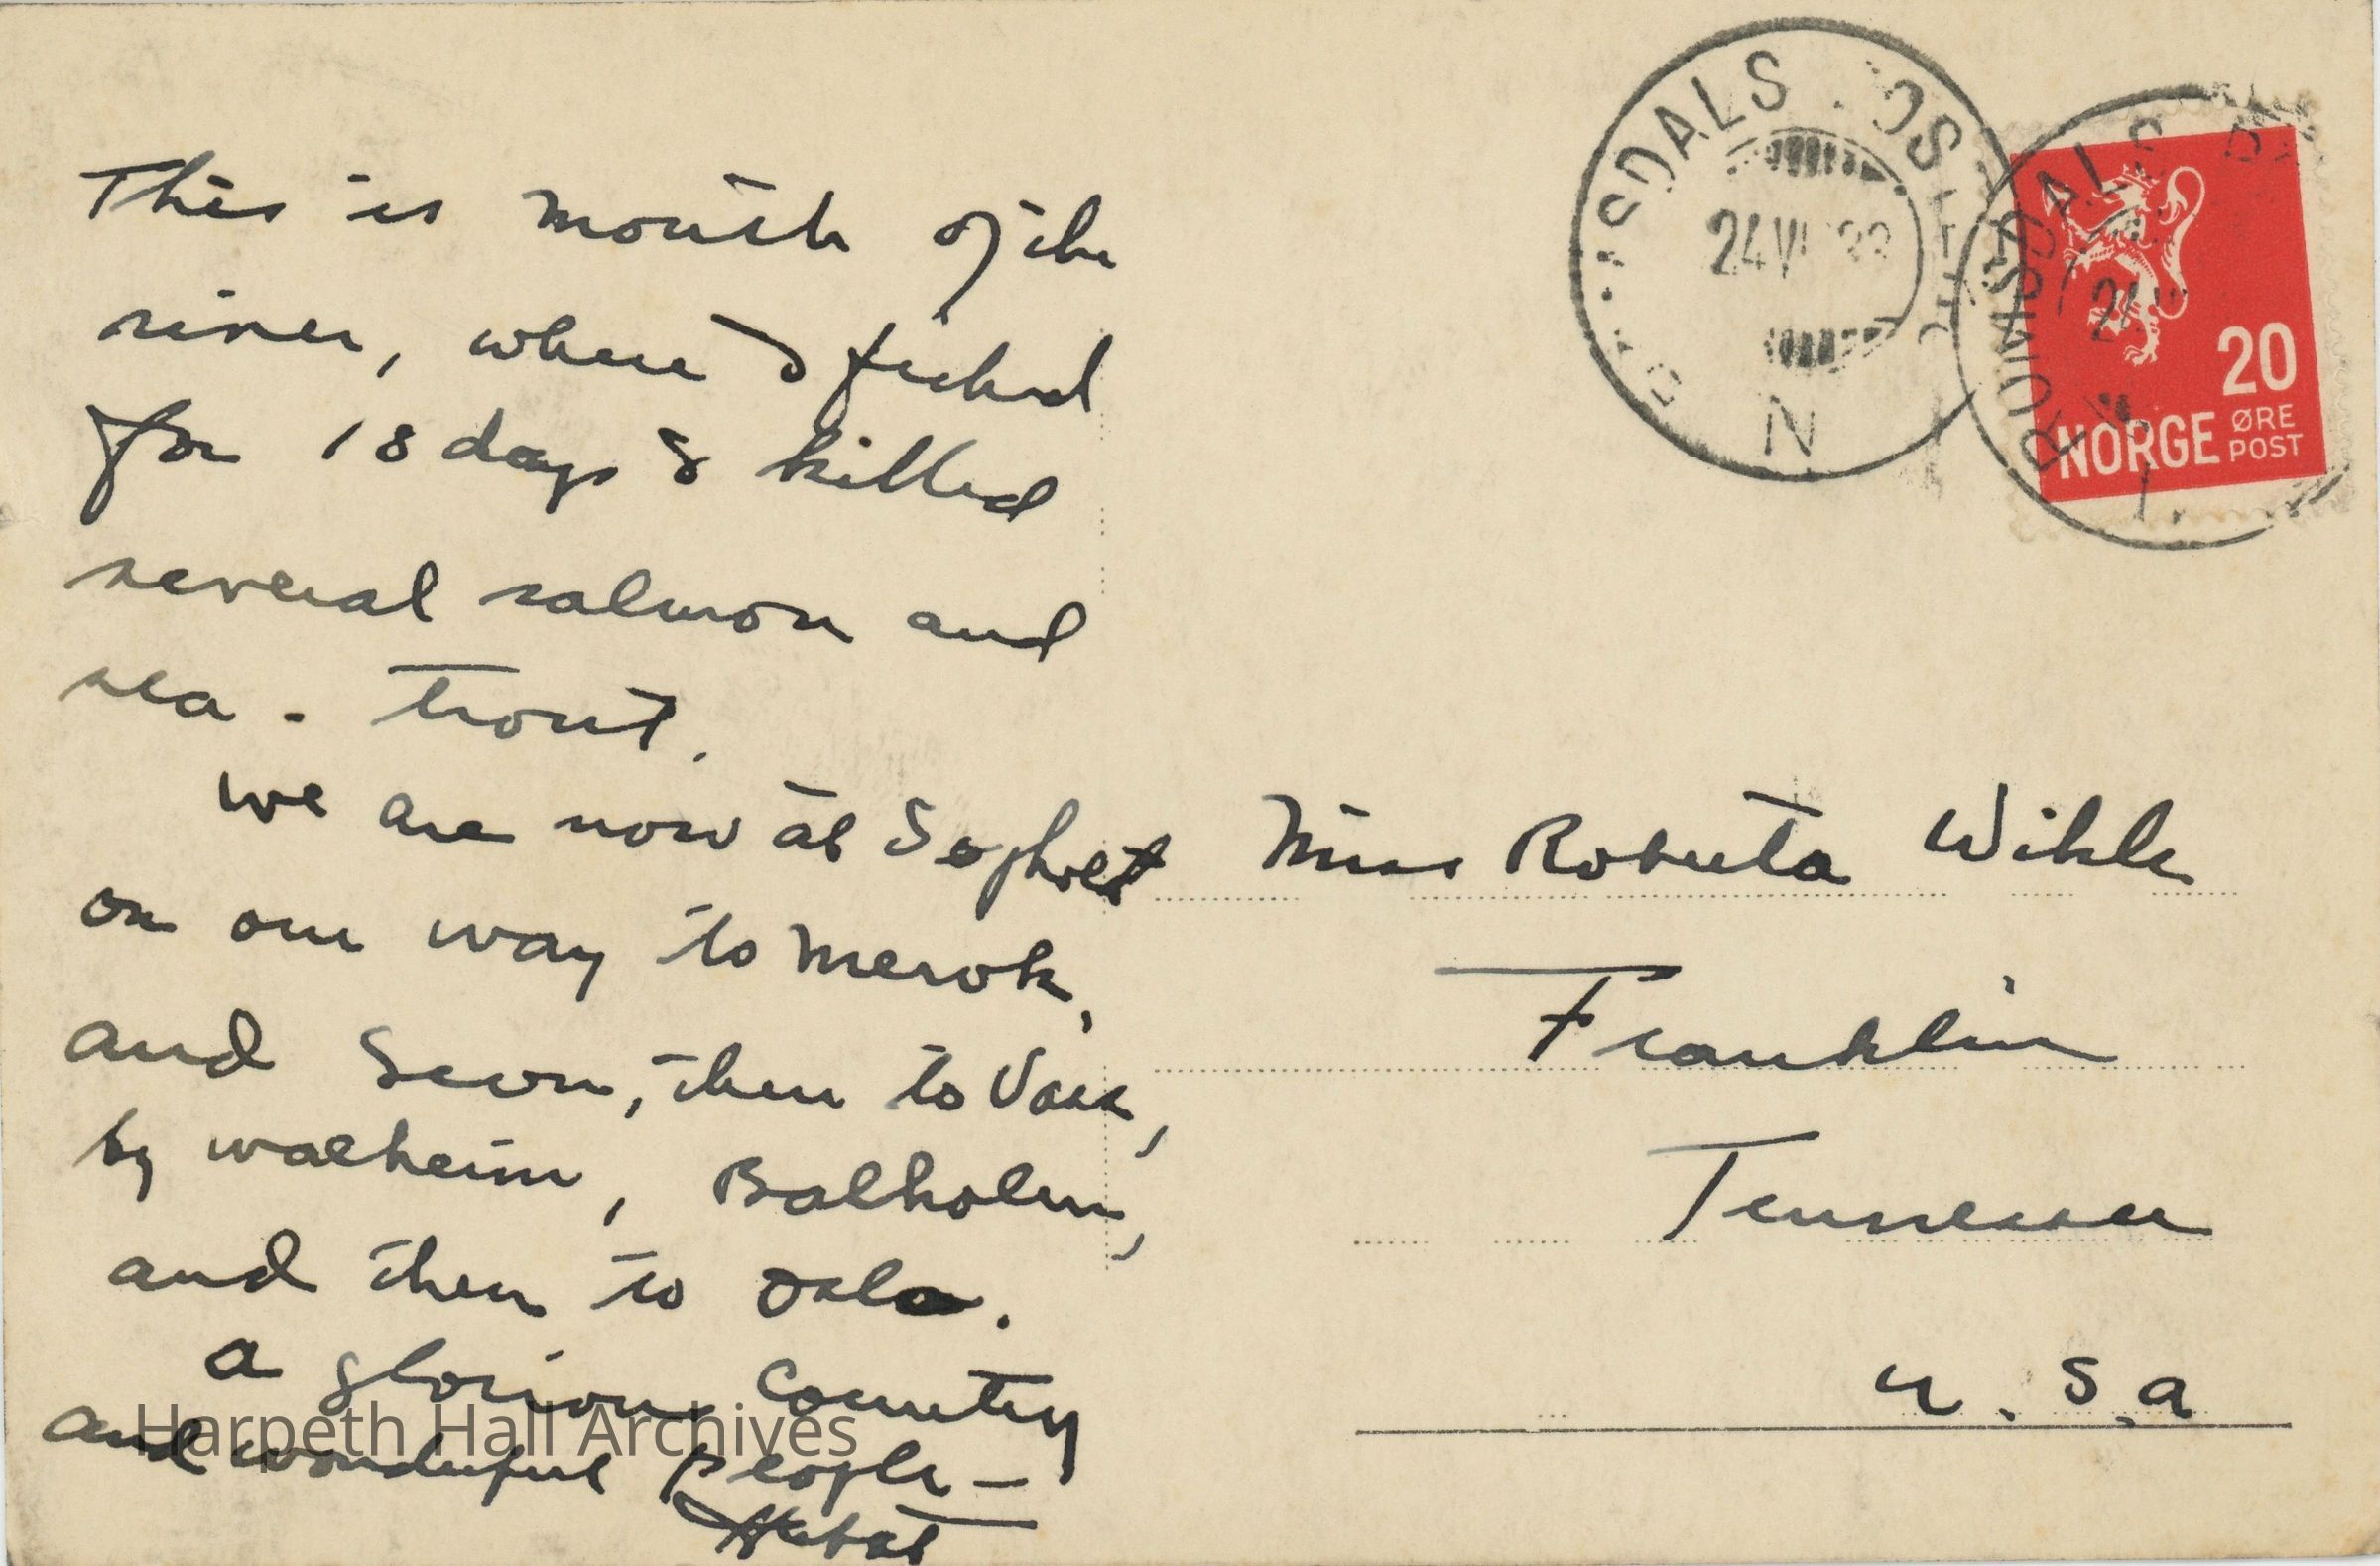 This is mouth of the
river, where I fished
for 18 days & killed
several salmon and
sea - trout.
we are now at Sepholt
on our way to Merok,
and Seon, then to Voss,
by Walheim, Balholm,
and then to Oslo.
a glorious country
and wonderful people —
Miss Roberta Wikle
Franklin
Tennessee
U.S.A
SDALS . OS
24 VI
N
ROMSDALS
24
20
NORGE ØRE
POST
Harpeth Hall Archives